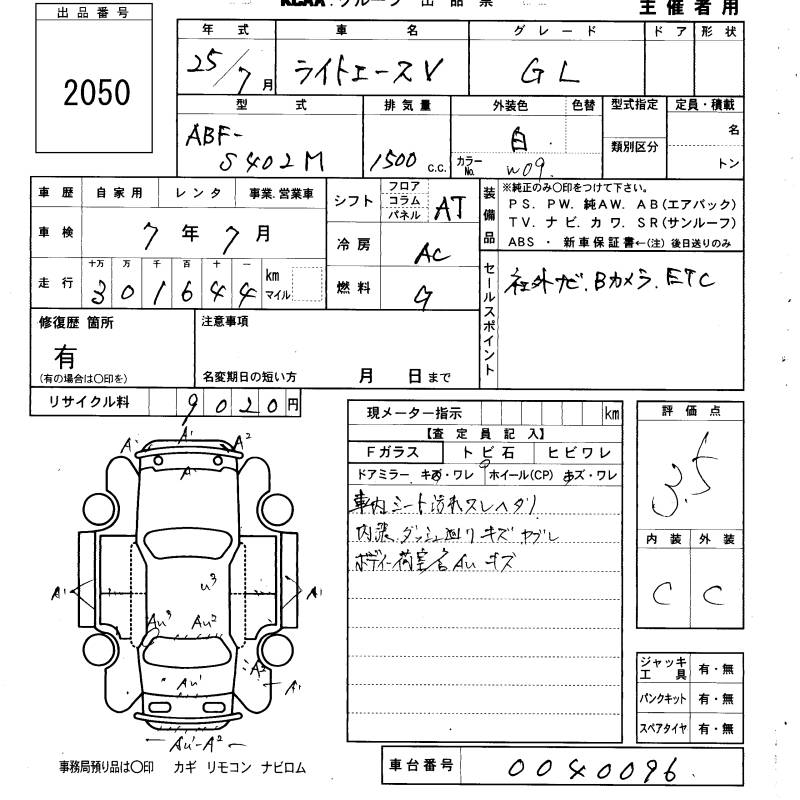 KCAA グループ 出品票
主催者用
出品番号
2050
年式 車名 グレード ドア 形状
25/7月 ライトエースV GL
型式 排気量 外装色 色替 型式指定 定員・積載
ABF-
S402M
1500 c.c.
白
カラーNo. W09
類別区分
名
トン
車歴 自家用 レンタ 事業.営業車
シフト フロア コラム パネル AT
車検 7年7月
冷房 AC
走行 十万 万 千 百 十 一
301644 km マイル
燃料 G
装備品
※純正のみ〇印をつけて下さい。
PS. PW. 純AW. AB(エアバック)
TV. ナビ. カワ. SR(サンルーフ)
ABS ・ 新車保証書←(注) 後日送りのみ
セールスポイント
社外ナビ.Bカメラ.ETC
修復歴 箇所
有
(有の場合は〇印を)
注意事項
名変期日の短い方 月 日まで
リサイクル料 9020円
現メーター指示 km
【査定員記入】
Fガラス トビ石 ヒビワレ
ドアミラー キズ・ワレ ホイール(CP) キズ・ワレ
車内シート汚れスレヘタリ
内装.ダッシュ廻りキズヤブレ
ボディー荷室各AUキズ
評価点
3.5
内装 外装
C C
A1
A1 A2
A
U3
AU3 AU2
A1 A1
A2
AU1
A1
AU1-A2
ジャッキ工具 有・無
パンクキット 有・無
スペアタイヤ 有・無
事務局預り品は〇印 カギ リモコン ナビロム
車台番号 0040096